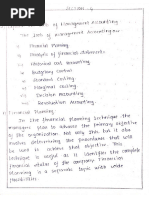 SECTION - 4
Tools of Management Accounting
The tools of management Accounting are
i) Financial Planning
ii) Analysis of financial statements
iii) Historical Cost Accounting
iv) Budgetary Control
v) Standard Costing
vi) Marginal Costing
vii) Decision Accounting
viii) Revaluation Accounting
Financial Planning
In the Financial planning technique the
managers plan to advance the primary objective
of the organisation. Not only this, but it also
involves determining the procedures that will
be used to achieve that objective. This
technique is useful as it identifies the complete
financial status of the company. Financial
Planning is a separate topic with wide